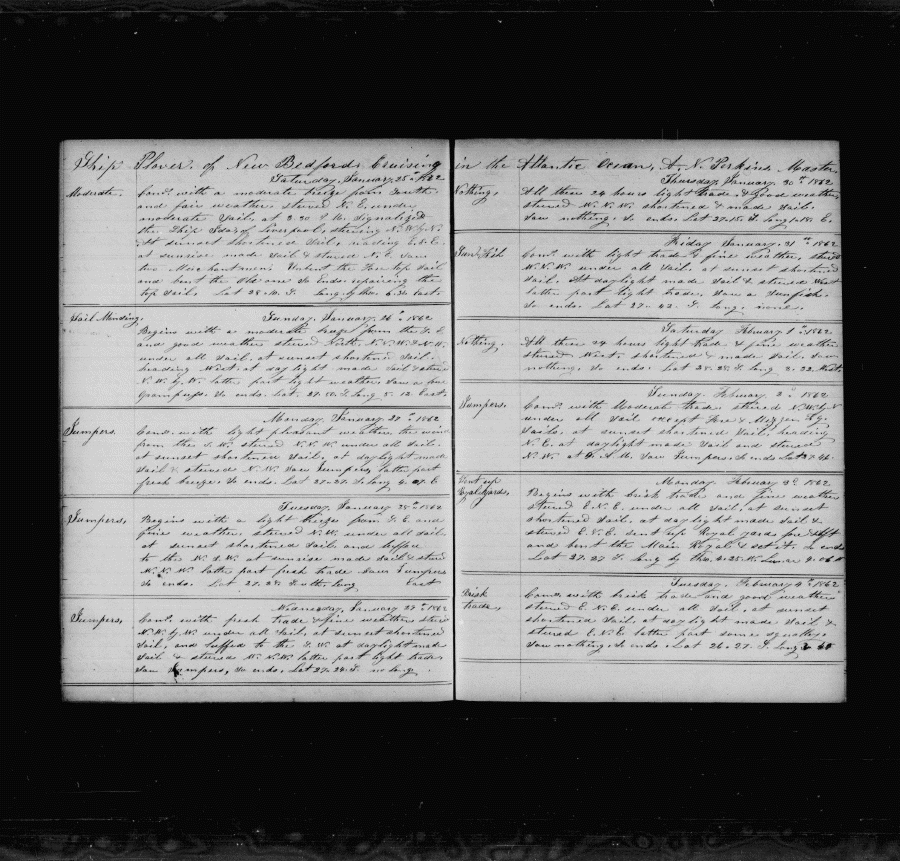 Ship Plover of New Bedford Cruising
Saturday, January 25th 1862
Moderate. Coms. with a moderate breeze from South
and fair weather, stered N.E. under
moderate Sail. at 3.30 P.M. signalized
the Ship Ida of Liverpool, steering N.W. by N.
At sunset shortened Sail, heading E.S.E.
at sunrise made Sail & stered N.E. Saw
two Merchantmen. Unbent the Fore top Sail
and bent the Old one So Ends. repairing the
top Sail. Lat 28. S. Long by 6. East.
Sail Mending. Sunday, January 26th 1862
Begins with a moderate breeze from the S.E.
and good weather stered North. N.N.W. & N.W.
under all Sail. at sunset shortened Sail.
heading West. at day light made Sail & stered
N.W. by W. latter part light weather. Saw a few
Grampuses. So ends. Lat. 27.50. S. Long 5. 12 East.
Jumpers. Monday, January 27th 1862
Coms. with light pleasant weather, the wind
from the S.W. stered N.N.W. under all Sail.
at sunset shortened Sail, at daylight made
Sail & stered N.W. Saw Jumpers, latter part
fresh breeze. So ends. Lat 27.27. S. Long 4. 07. E
Jumpers. Tuesday, January 28th 1862
Begins with a light breeze from S.E. and
fine weather. stered N.W. under all Sail.
at sunset shortened Sail and luffed
to the W.S.W. at sunrise made Sail & stered
W.N.W. latter part fresh trade Saw Jumpers
So ends. Lat 27.28. South. Long East
Jumpers. Wednesday, January 29th 1862
Coms. with fresh trade & fine weather stered
N.W. by W. under all Sail, at sunset shortened
Sail, and luffed to the S.W. at daylight made
Sail & stered W.N.W. latter part light trade,
Saw Jumpers, So ends, Lat 27.24. S. no long.
in the Atlantic Ocean, A. N. Perkins Master
Thursday, January 30th 1862
Nothing. All these 24 hours light trade & good weather
stered W.N.W. shortened & made Sail.
Saw nothing. So ends. Lat 27.15. S. Long 1.18. E.
Friday January 31st 1862
Sun Fish Coms. with light trade & fine weather, stered
W.N.W. under all Sail. at sunset shortened
Sail. At daylight made Sail & stered West
latter part light trade, Saw a Sunfish.
So ends. Lat 27. 42. S. Long. none.
Saturday February 1st 1862
Nothing. All these 24 hours light trade & fine weather
stered West. shortened & made Sail. Saw
nothing. So ends. Lat 28.28. S. Long 3. 22. West
Sunday. February 2d 1862
Jumpers. Coms. with Moderate trade stered N.W. by N
under all Sail except Fore & Mizzen T.G.
Sails. at sunset shortened Sail, heading
N.E. at daylight made Sail and stered
N.W. at A.M. Saw Jumpers. So ends Lat 27.46.
Monday. February 3d 1862
Sent up
Royal yards. Begins with brisk trade and fine weather
stered E.N.E. under all Sail, at sunset
shortened Sail, at daylight made Sail &
stered E.N.E. sent up Royal yards fore & aft
and bent the Main Royal & set it. So ends
Lat 27.27 S. Long by Chro. 4.25. W. Lunar 4.06
Tuesday, February 4th 1862
Brisk
trade. Coms. with brisk trade and good weather
stered E.N.E. under all Sail, at sunset
shortened Sail, at daylight made Sail &
stered E.N.E. latter part some squalley.
Saw nothing. So ends. Lat 26.27. S. Long